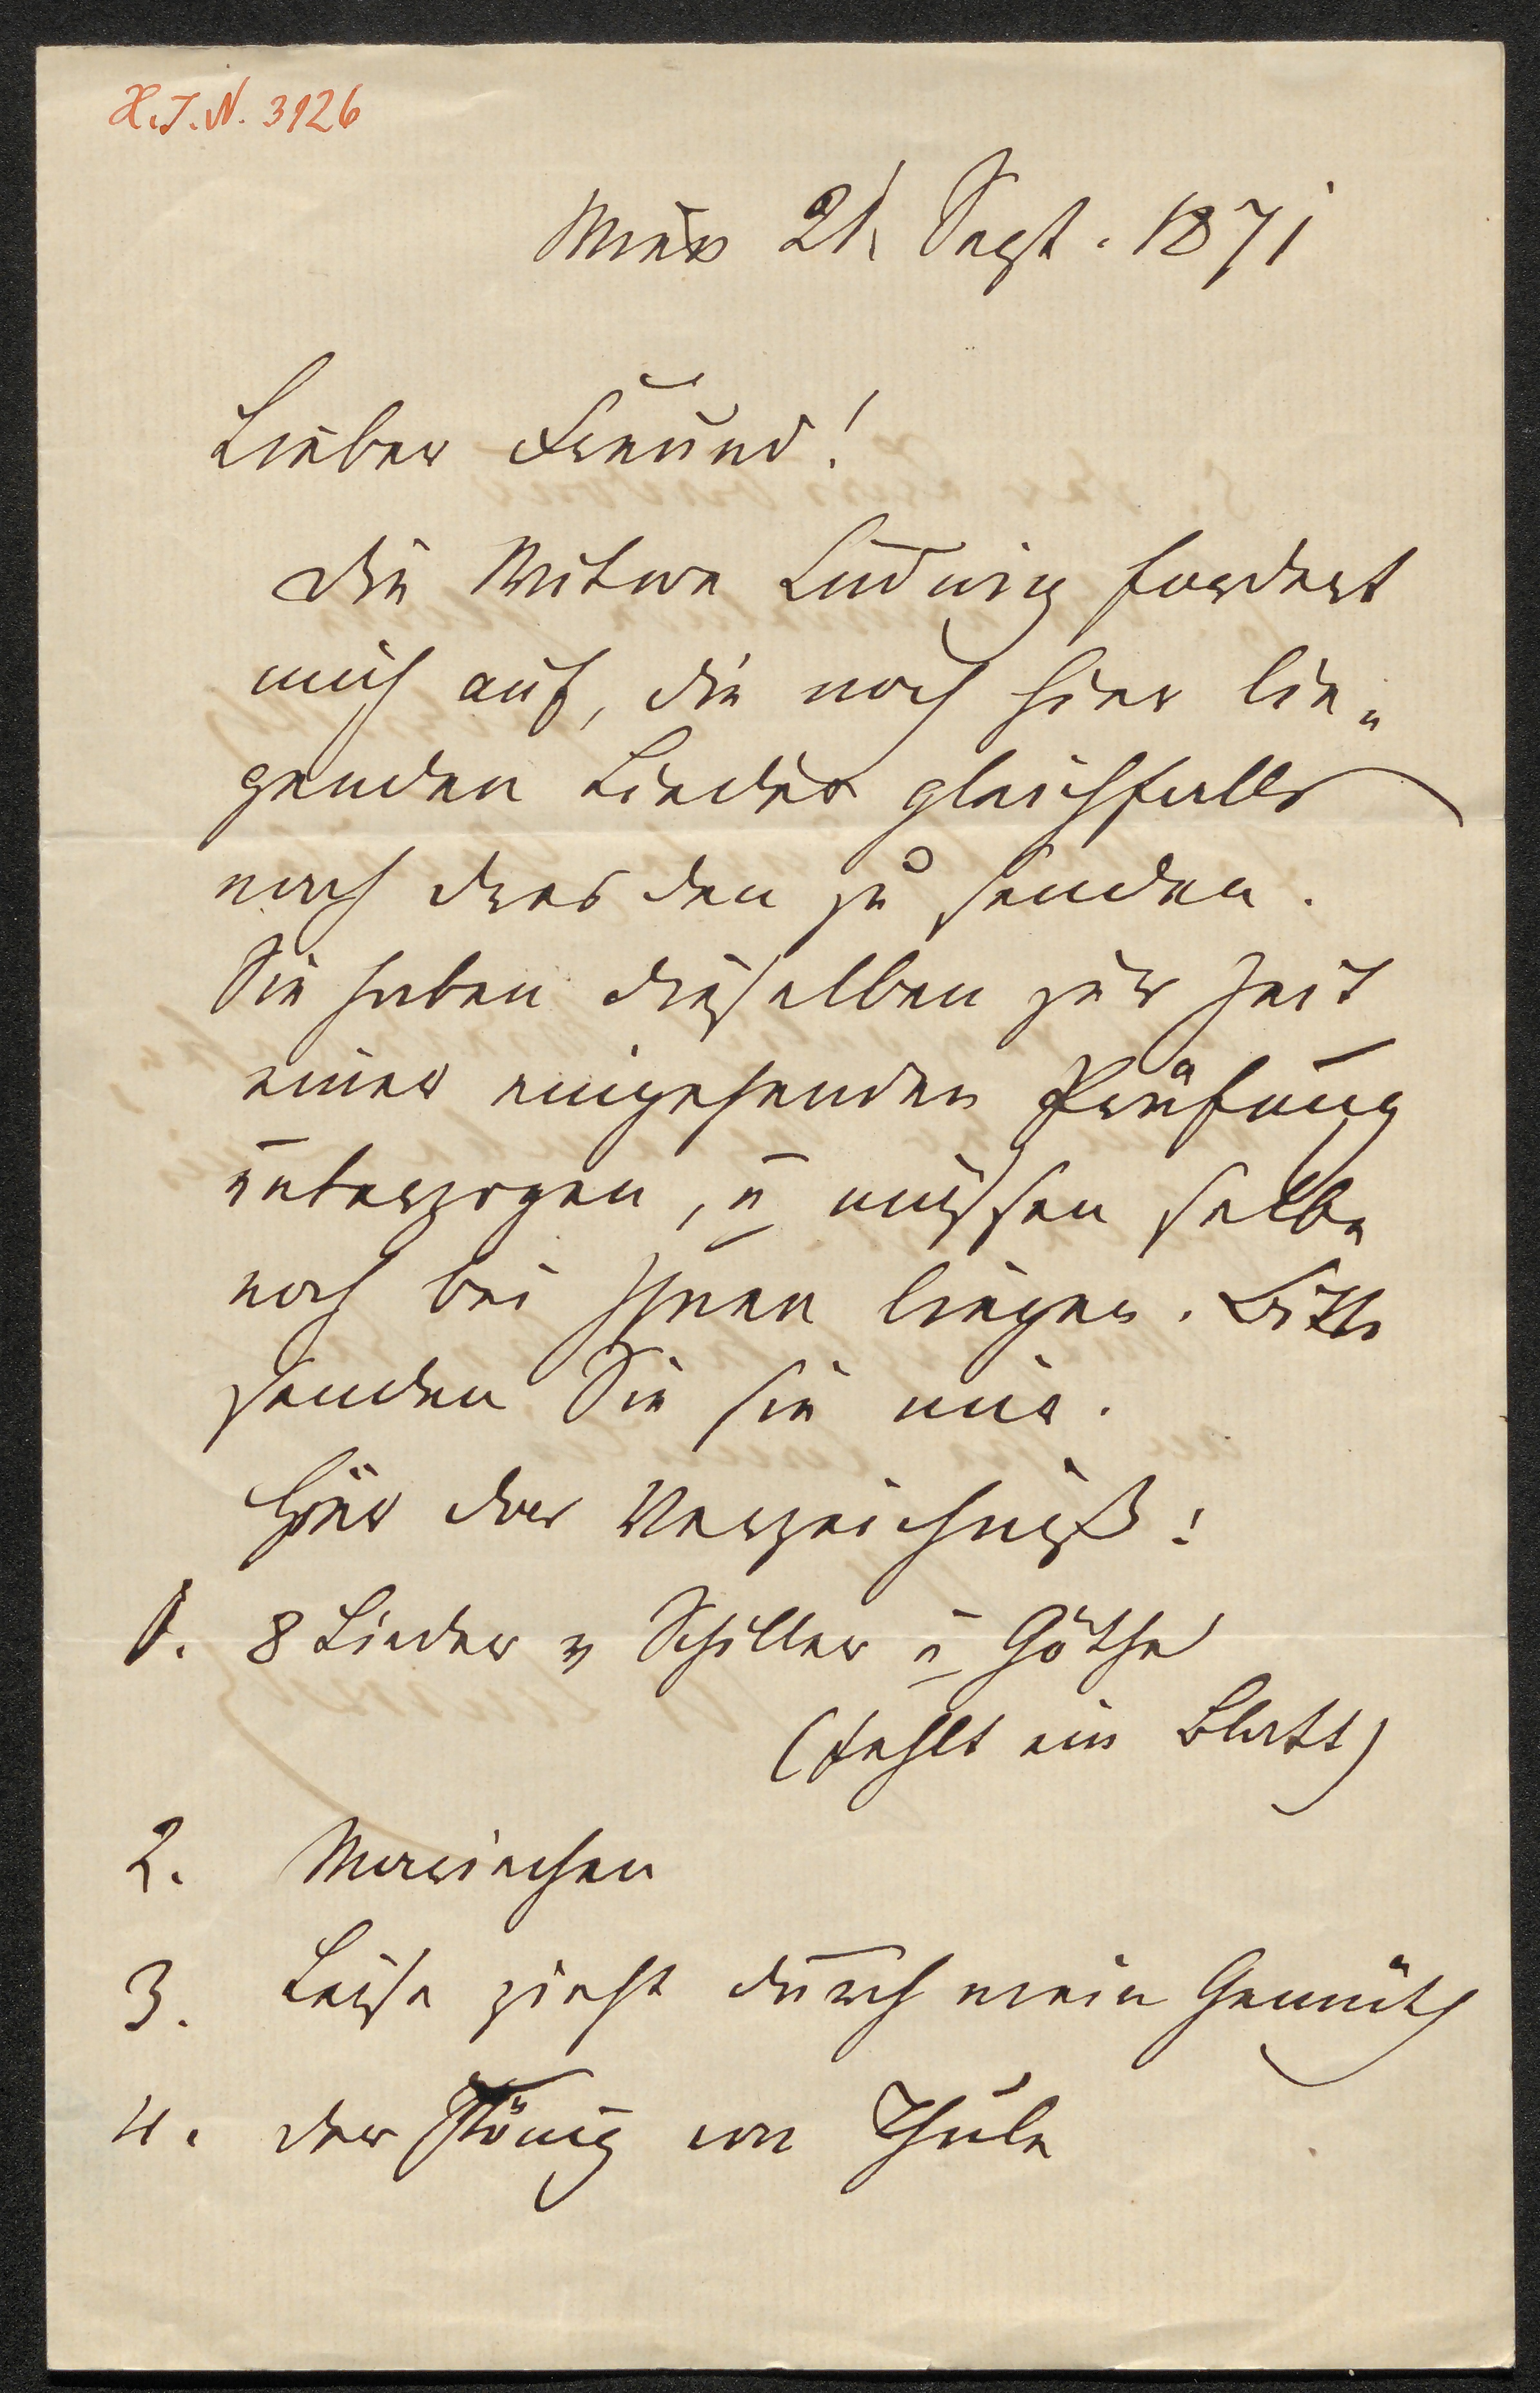 H.I.N. 3926
Wien 21. Sept. 1871
Lieber Freund!
Die Witwe Ludwig fordert
mich auf, die noch hier lie„
genden Lieder gleichfalls
nach Dresden zu senden.
Sie haben dieselben zur Zeit
einer eingehenden Prüfung
unterzogen, u müssen selbe
noch bei Ihnen liegen. Bitte
senden Sie sie mir.
Hier das Verzeichniß:
1. 8 Lieder v Schiller u Göthe
(fehlt ein Blatt)
2. Mariechen
3. Leise zieht durch mein Gemüth
4. der König von Thule